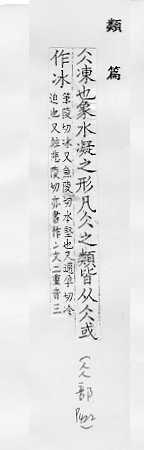 類篇
仌凍也象水凝之形凡仌之類皆从仌或
作冰
筆陵切冰又魚陵切水堅也又逋孕切冷
迫也又
陵切亦書作二文二重音三
(仌部
P422)